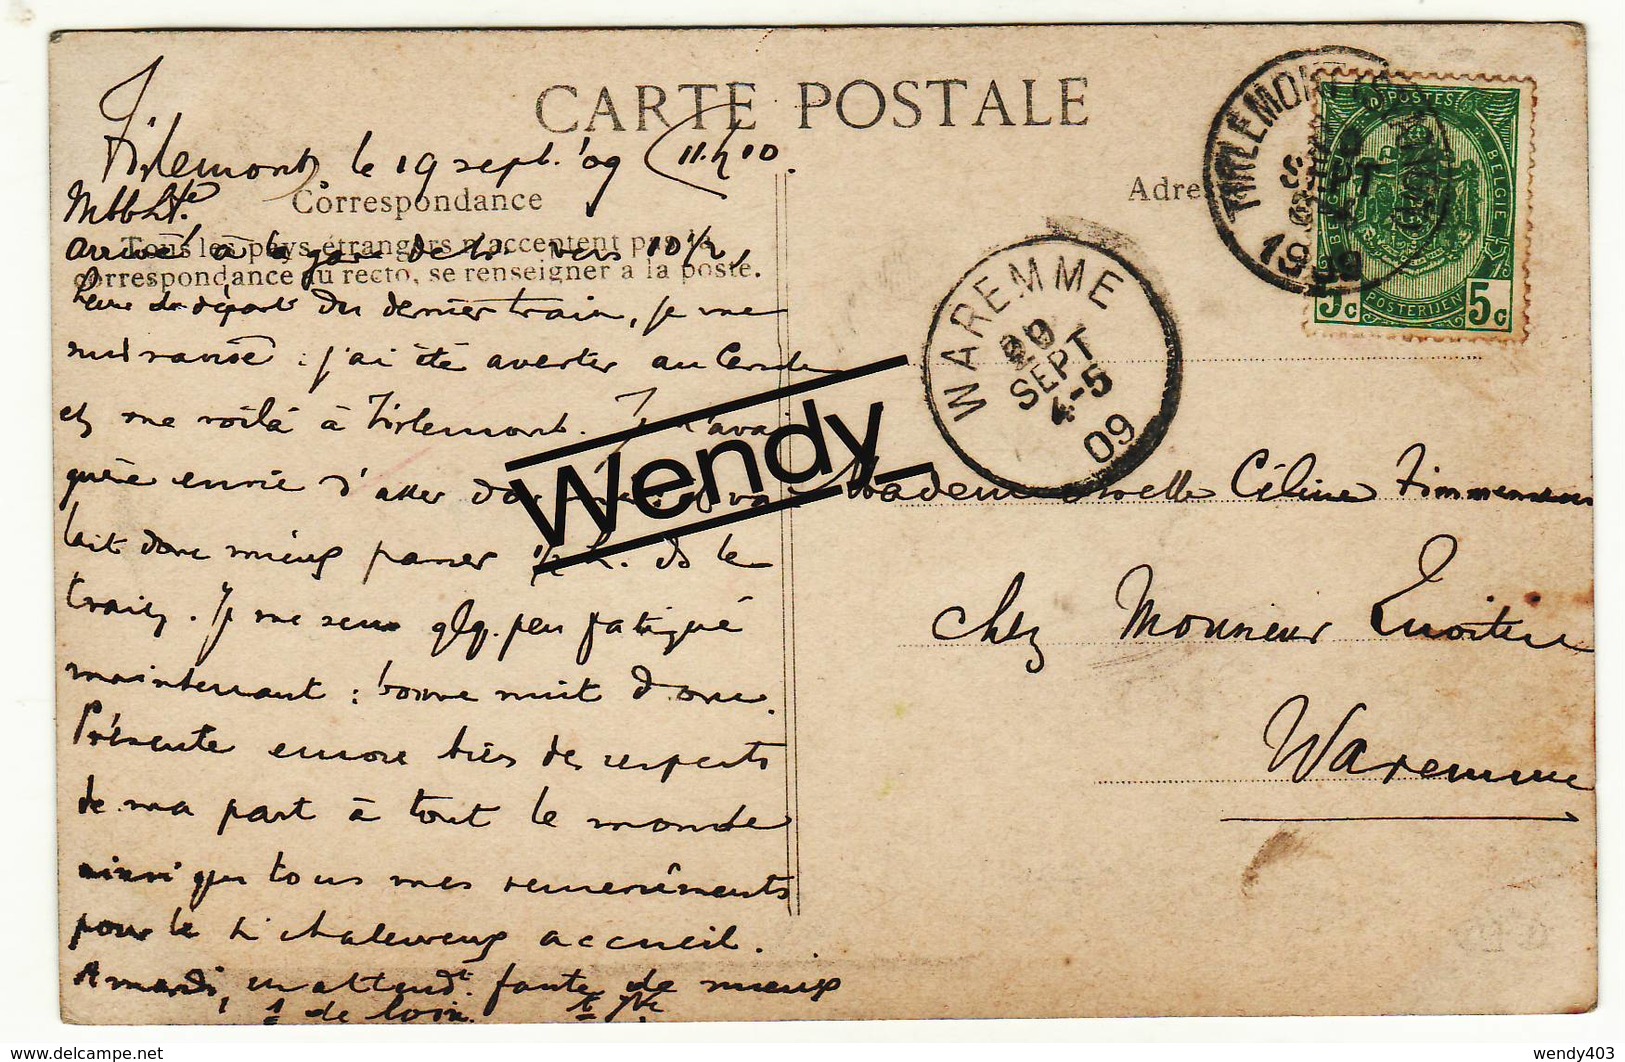 CARTE POSTALE
Tirlemont, le 19 sept. '09 (11.h10
Correspondance
Tous les pays étrangers n'acceptent pas la
correspondance au recto, se renseigner à la poste.
arrivé à la gare de vers 10 1/2,
heure de départ du dernier train, je me
suis ravisé : j'ai été avertir au Cercle
et me voilà à Tirlemont. Je n'avais
guère envie d'aller
lait donc mieux passer 1/2 h. ds le
train. Je me sens qlq. peu fatigué
maintenant : bonne nuit donc.
Présente encore bien des respects
de ma part à tout le monde
ainsi que tous mes remerciements
pour le si chaleureux accueil.
A mardi, en attendt. faute de mieux
1 de loin.
Adre
TIRLEMONT
SEPT
1909
POSTES
BELGIQUE
BELGIE
5c POSTERIJEN 5c
WAREMME
20
SEPT
4-5
09
Mademoiselle Céline Timmermans
chez Monsieur
Waremme
Wendy
www.delcampe.net
wendy403